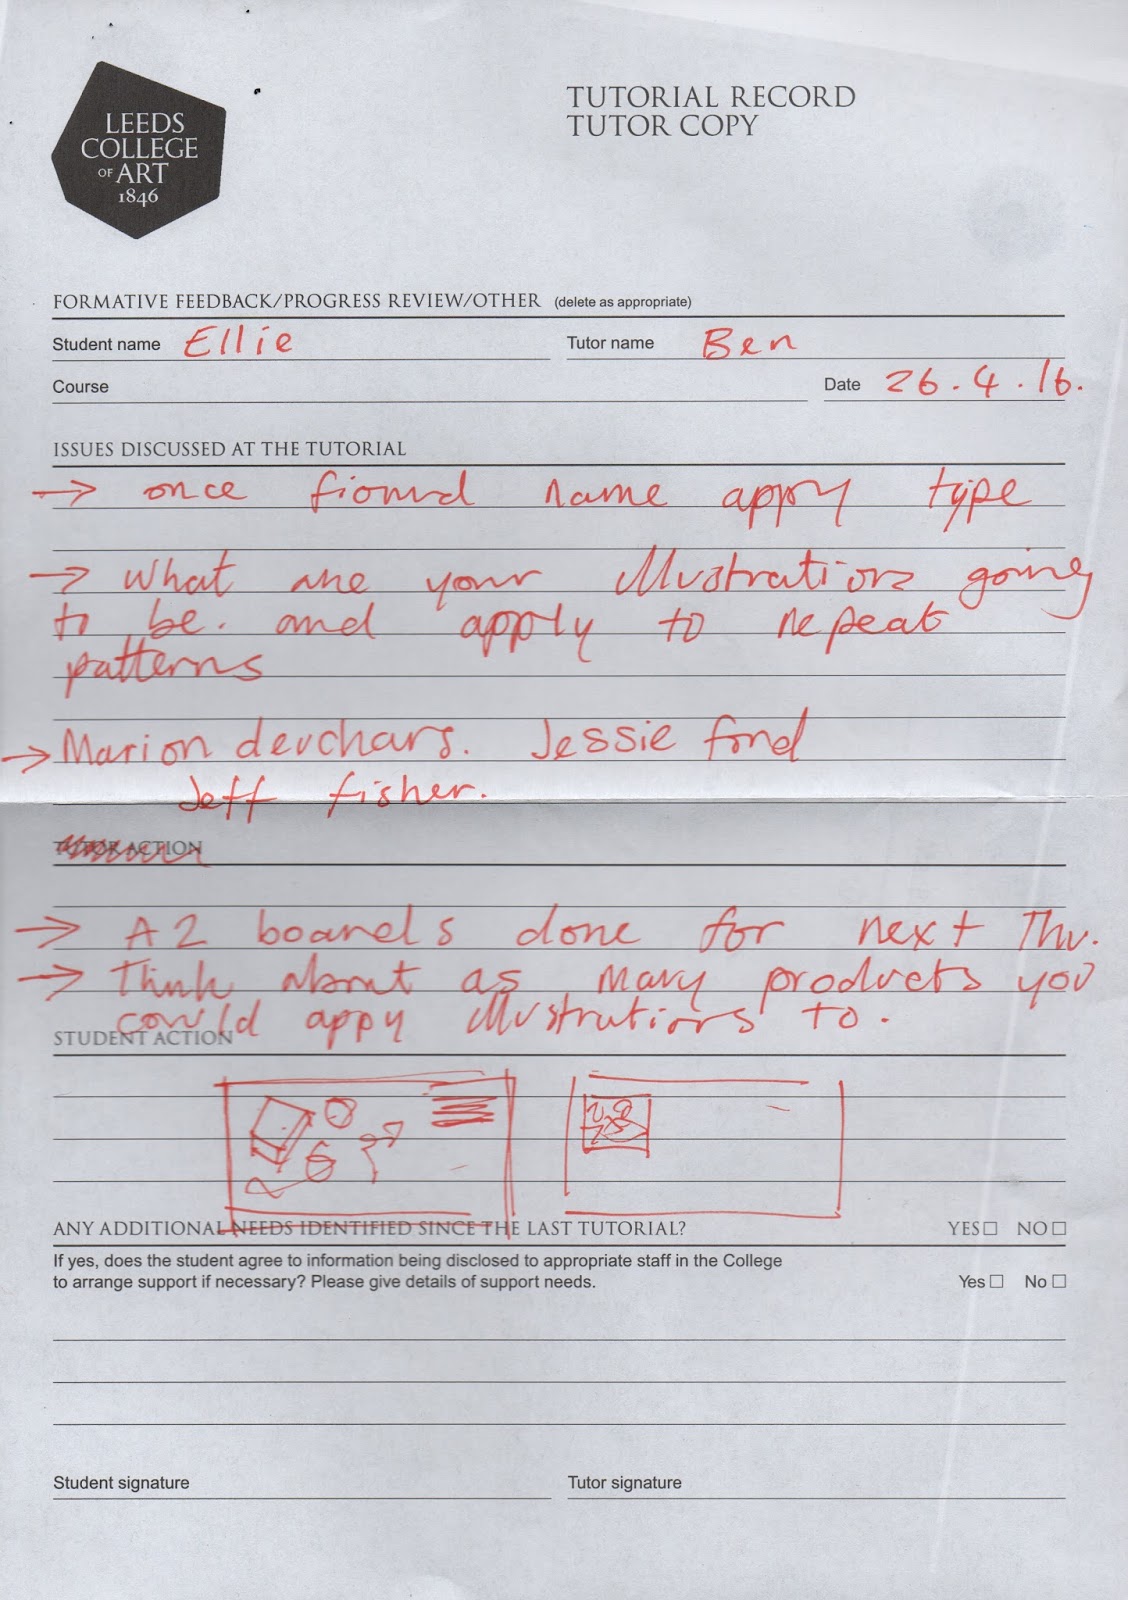 LEEDS
COLLEGE
OF ART
1846
TUTORIAL RECORD
TUTOR COPY
FORMATIVE FEEDBACK/PROGRESS REVIEW/OTHER (delete as appropriate)
Student name Ellie Tutor name Ben
Course Date 26.4.16.
ISSUES DISCUSSED AT THE TUTORIAL
→ once fiound name appy type
→ What are your illustrations going
to be. and apply to repeat
patterns
→ Marion deuchars. Jessie ford
Jeff fisher.
TUTOR ACTION
→ A2 boards done for next Thu.
→ Think about as many products you
could appy illustrations to.
STUDENT ACTION
ANY ADDITIONAL NEEDS IDENTIFIED SINCE THE LAST TUTORIAL? YES☐ NO☐
If yes, does the student agree to information being disclosed to appropriate staff in the College
to arrange support if necessary? Please give details of support needs. Yes☐ No☐
Student signature Tutor signature